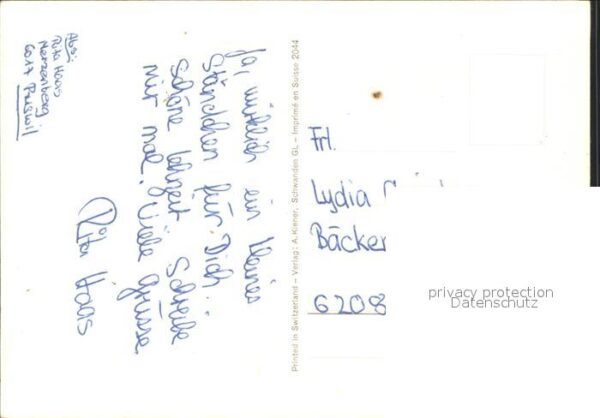 Abs:
Rita Haas
Merzenberg
6017 Ruswil
Ja, wirklich ein kleines
Ständchen für Dich.
schöne Schreibe
mir mal. Viele Grüsse
Rita Haas
Printed in Switzerland – Verlag: A. Kiener, Schwanden GL – Imprimé en Suisse 2044
Frl.
Lydia
Bäcker
6208
privacy protection
Datenschutz